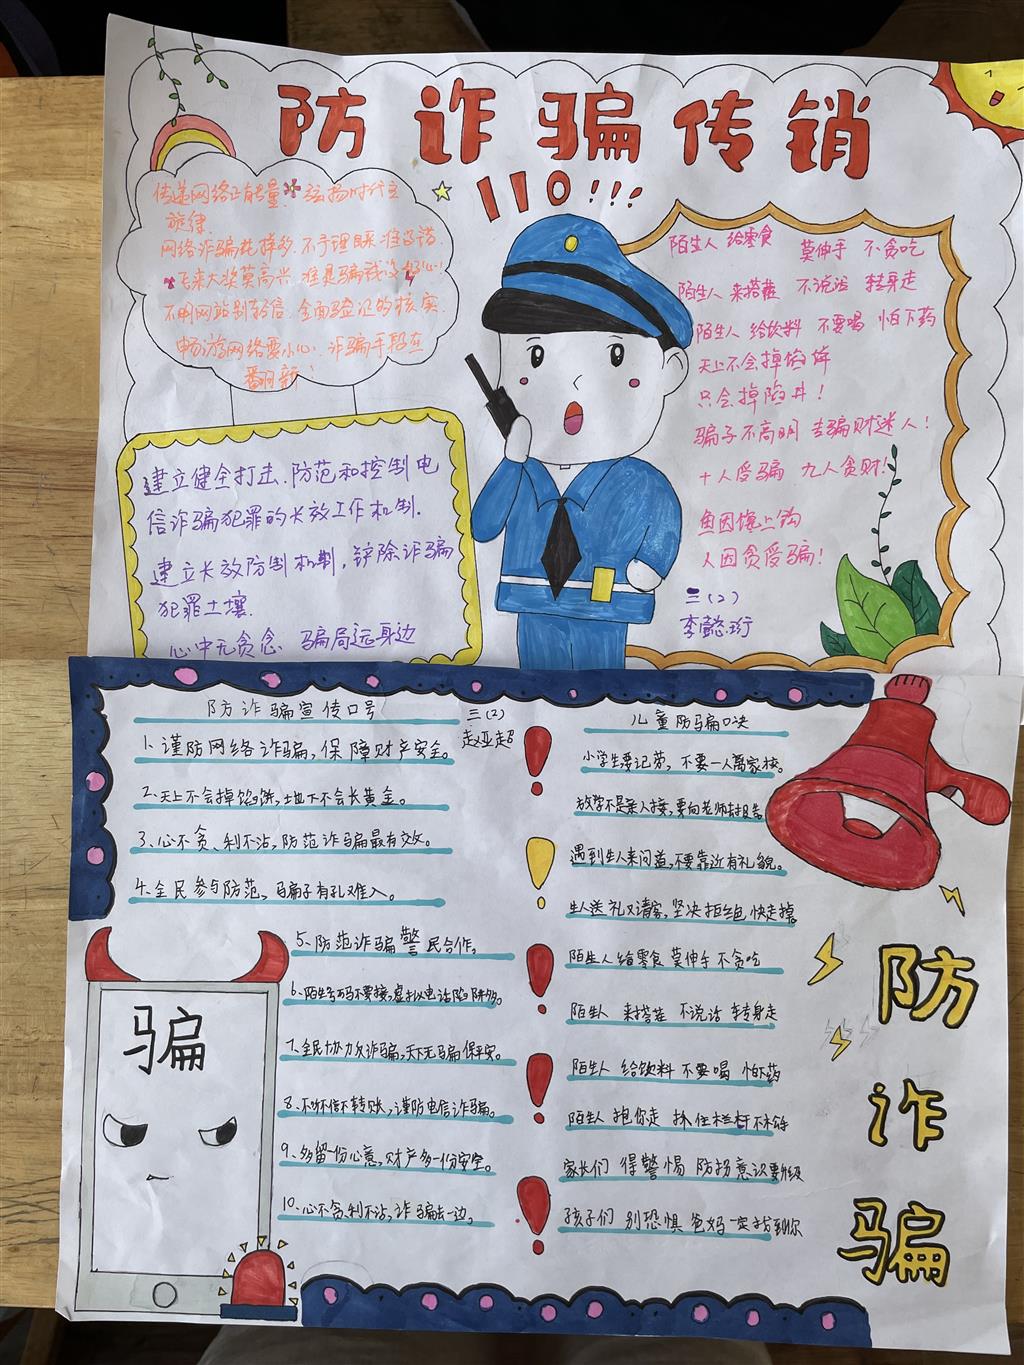 防诈骗传销
110!!!
传递网络正能量.弘扬时代主
旋律.
网络诈骗花样多.不予理睬准没错
飞来大奖莫高兴 准是骗钱没好心!
不明网站别轻信.全面验证的核实.
畅游网络要小心.诈骗手段在
翻新!
建立健全打击、防范和控制电
信诈骗犯罪的长效工作机制.
建立长效防制机制,铲除诈骗
犯罪土壤.
心中无贪念 骗局远身边
陌生人 给零食 莫伸手 不贪吃
陌生人 来搭茬 不说话 转身走
陌生人 给饮料 不要喝 怕下药
天上不会掉馅饼
只会掉陷井!
骗子不高明 专骗财迷人!
十人受骗 九人贪财!
鱼因馋上钩
人因贪受骗!
三(2)
李懿珩
防诈骗宣传口号
三(2)
赵亚超
1、谨防网络诈骗,保障财产安全。
2、天上不会掉馅饼,地下不会长黄金。
3、心不贪、利不沾,防范诈骗最有效。
4、全民参与防范,骗子有孔难入。
5、防范诈骗警民合作。
6、陌生号码不要接,虚拟电话陷阱多。
7、全民协力反诈骗,天下无骗保平安。
8、不听不信不转账,谨防电信诈骗。
9、多留一份心意,财产多一份安全。
10、心不贪,利不沾,诈骗去一边。
骗
儿童防骗口诀
小学生要记劳,不要一人离家校。
放学不是亲人接,要向老师去报告
遇到生人来问道,不要靠近有礼貌。
生人送礼又请客,坚决拒绝快走掉。
陌生人 给零食 莫伸手 不贪吃
陌生人 来搭茬 不说话 转身走
陌生人 给饮料 不要喝 怕下药
陌生人 抱你走 抓住栏杆不松
家长们 得警惕 防拐意识要升级
孩子们 别恐惧 爸妈一定找到你
防
诈
骗